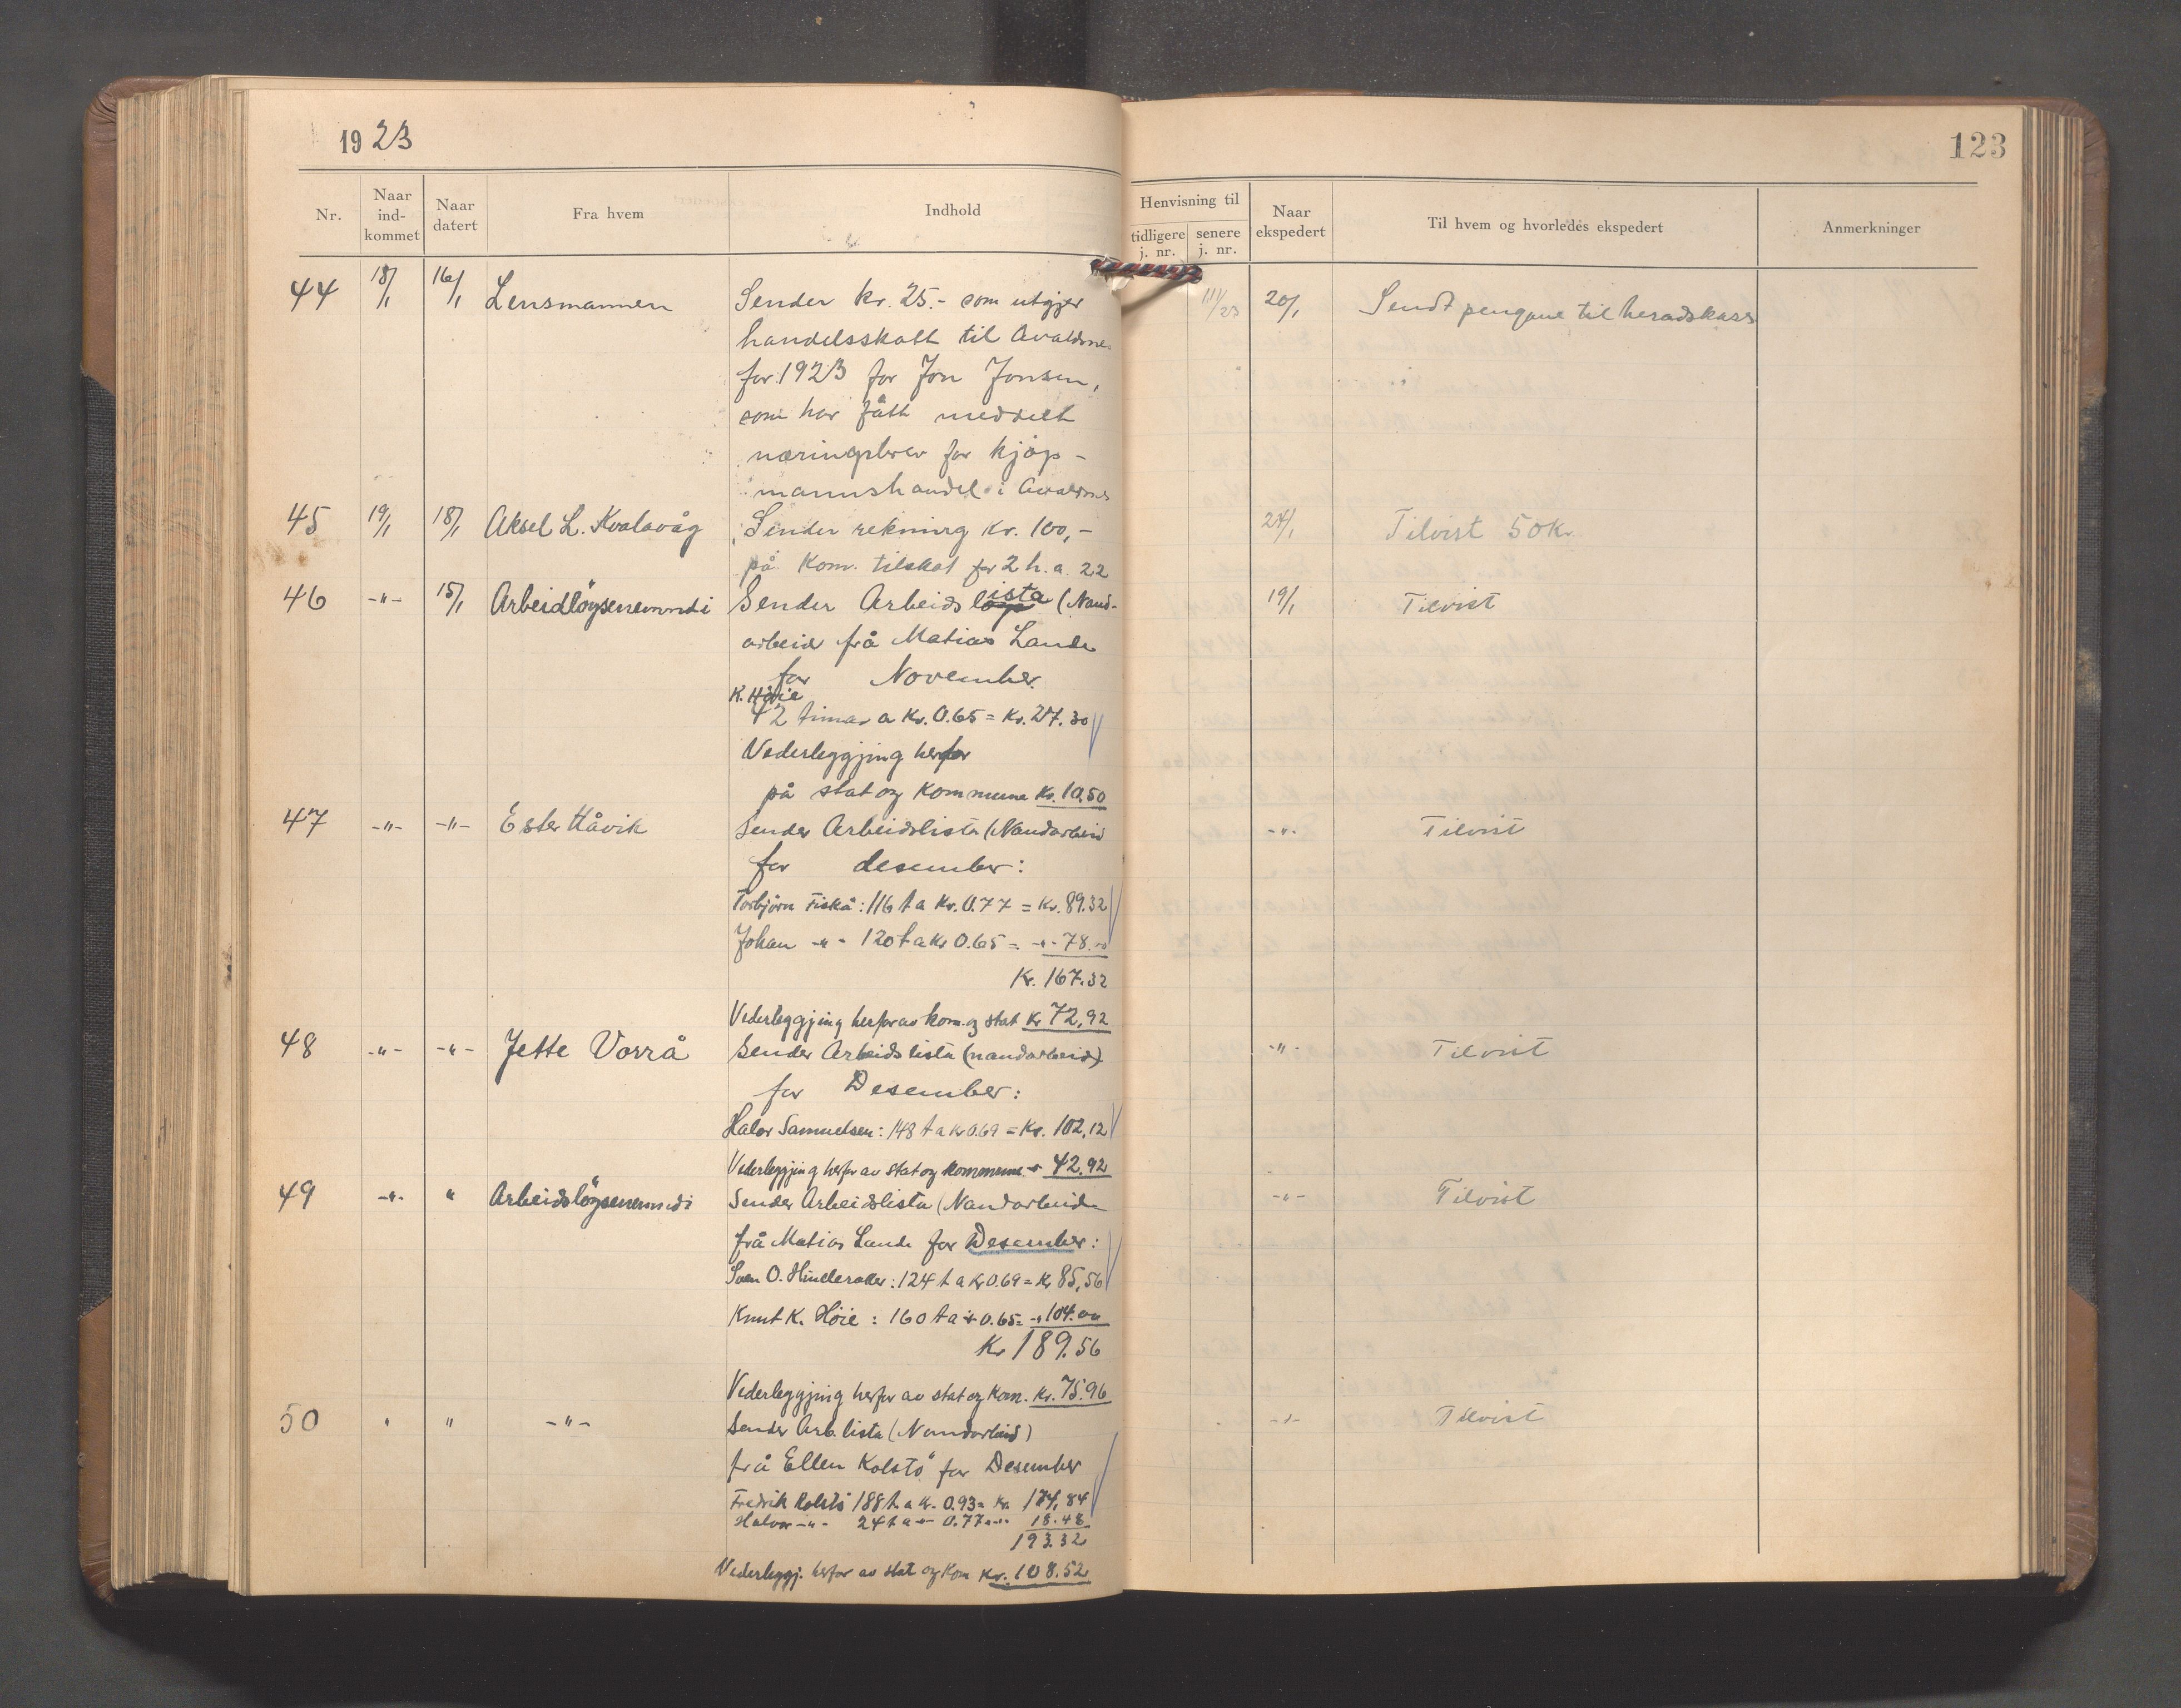 1923
123
Nr.
Naar ind-kommet
Naar datert
Fra hvem
Indhold
Henvisning til
tidligere j. nr.
senere j. nr.
Naar ekspedert
Til hvem og hvorledes ekspedert
Anmerkninger
44 18/1 16/1 Lensmannen Sender kr. 25.- som utgjer 111/23 20/1 Sendt pengane til heradskass
handelsskatt til Avaldsne
for 1923 for Jon Jonsen,
som har fått meddelt
næringsbrev for kjöp-
mannshandel i Avaldsnes
45 19/1 18/1 Aksel L. Kvalavåg Sender rekning kr. 100,- 24/1 Tilvist 50 Kr.
på Kom. tilskot for 2 h.a. 22
46 -"- 15/1 Arbeidlöysenemndi Sender Arbeidslista (Naud- 19/1 Tilvist
arbeid frå Matias Lande
for November
K. Höie
42 timar a Kr. 0.65 = Kr. 27.30
Vederleggjing herfor
på stat og Kommune Kr. 10.50
47 -"- -"- Ester Håvik Sender Arbeidslista (Naudarbeid -"- Tilvist
for desember:
Torbjörn Fiskå: 116 t a Kr. 0.77 = Kr. 89.32
Johan -"- 120 t a Kr 0.65 = -"- 78.00
Kr. 167.32
Vederleggjing herfor av kom. og stat Kr 72,92
48 -"- -"- Jette Vorrå Sender Arbeidslista (naudarbeid) -"- Tilvist
for Desember:
Halvor Samuelsen: 148 t a Kr 0.69 = Kr. 102,12
Vederleggjing herfor av stat og kommune -"- 42.92
49 -"- " Arbeidslöysenemndi Sender Arbeidslista (Naudarbeid -"- Tilvist
frå Matias Lande for Desember:
Sven O. : 124 t a Kr 0.69 = Kr 85,56
Knut K. Höie: 160 t a -"- 0.65 = -"- 104.00
Kr 189.56
Vederleggjing herfor av stat og Kom. Kr. 75.96
50 " " -"- Sender Arb. lista (Naudarbeid) -"- Tilvist
frå Ellen Kolstö for Desember
Fredrik Kolstö 188 t a Kr. 0.93 = Kr. 174,84
Halvor -"- 24 t a -"- 0.77 = -"- 18.48
193.32
Vederleggj. herfor av stat og Kom Kr. 108.52